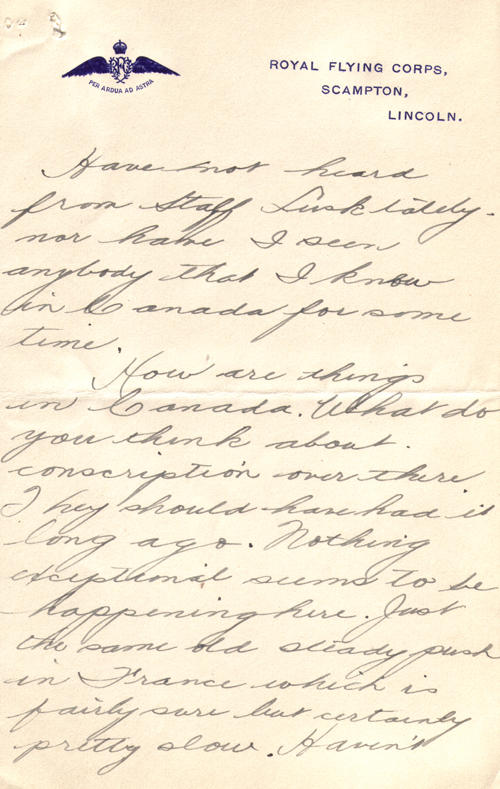 PER ARDUA AD ASTRA
ROYAL FLYING CORPS,
SCAMPTON,
LINCOLN.
Have not heard
from Staff Lusk lately.
nor have I seen
anybody that I know
in Canada for some
time.
How are things
in Canada. What do
you think about
conscription over there
They should have had it
long ago. Nothing
exceptional seems to be
happening here. Just
the same old steady push
in France which is
fairly sure but certainly
pretty slow. Haven't